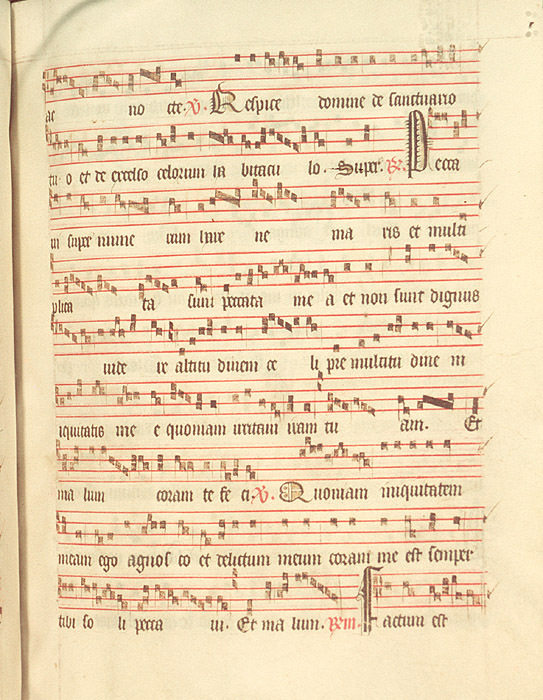 ac no cte. V. Respice domine de sanctuario
tu o et de excelso celorum in bitacu lo. Super. R. Pecca
ui super nume rum hare ne ma ris et multi
plica ta sunt peccata me a et non sum dignus
uide re altitu dinem ce li pre multitu dine in
iquitatis me e quoniam irritaui iram tu am. Et
ma lum coram te fe ci. V. Quoniam iniquitatem
meam ego agnos co et delictum meum coram me est semper
tibi so li pecca ui. Et ma lum. Factum est